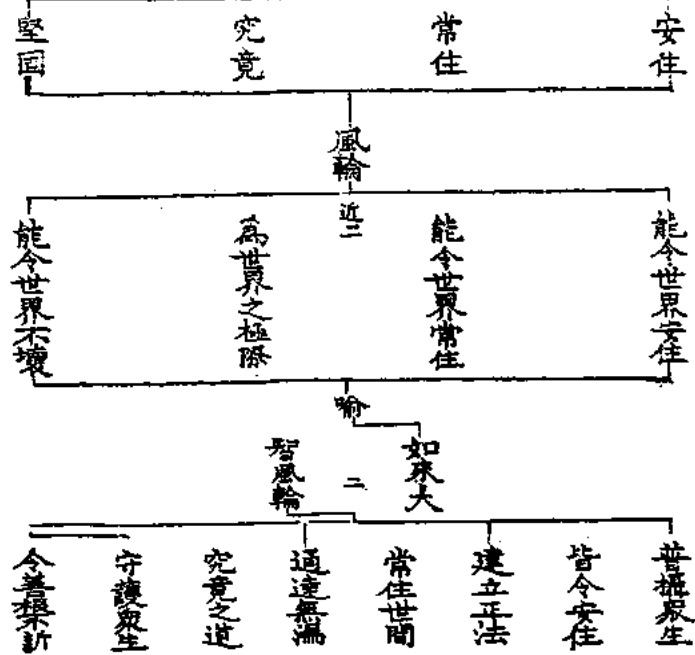 安住
常住
究竟
堅固
風輪
近二
能令世界安住
能令世界常住
為世界之極際
能令世界不壞
喻
如來大
二
智風輪
普攝眾生
皆令安住
建立正法
常住世間
通達無漏
究竟之道
守護眾生
令善根不斷